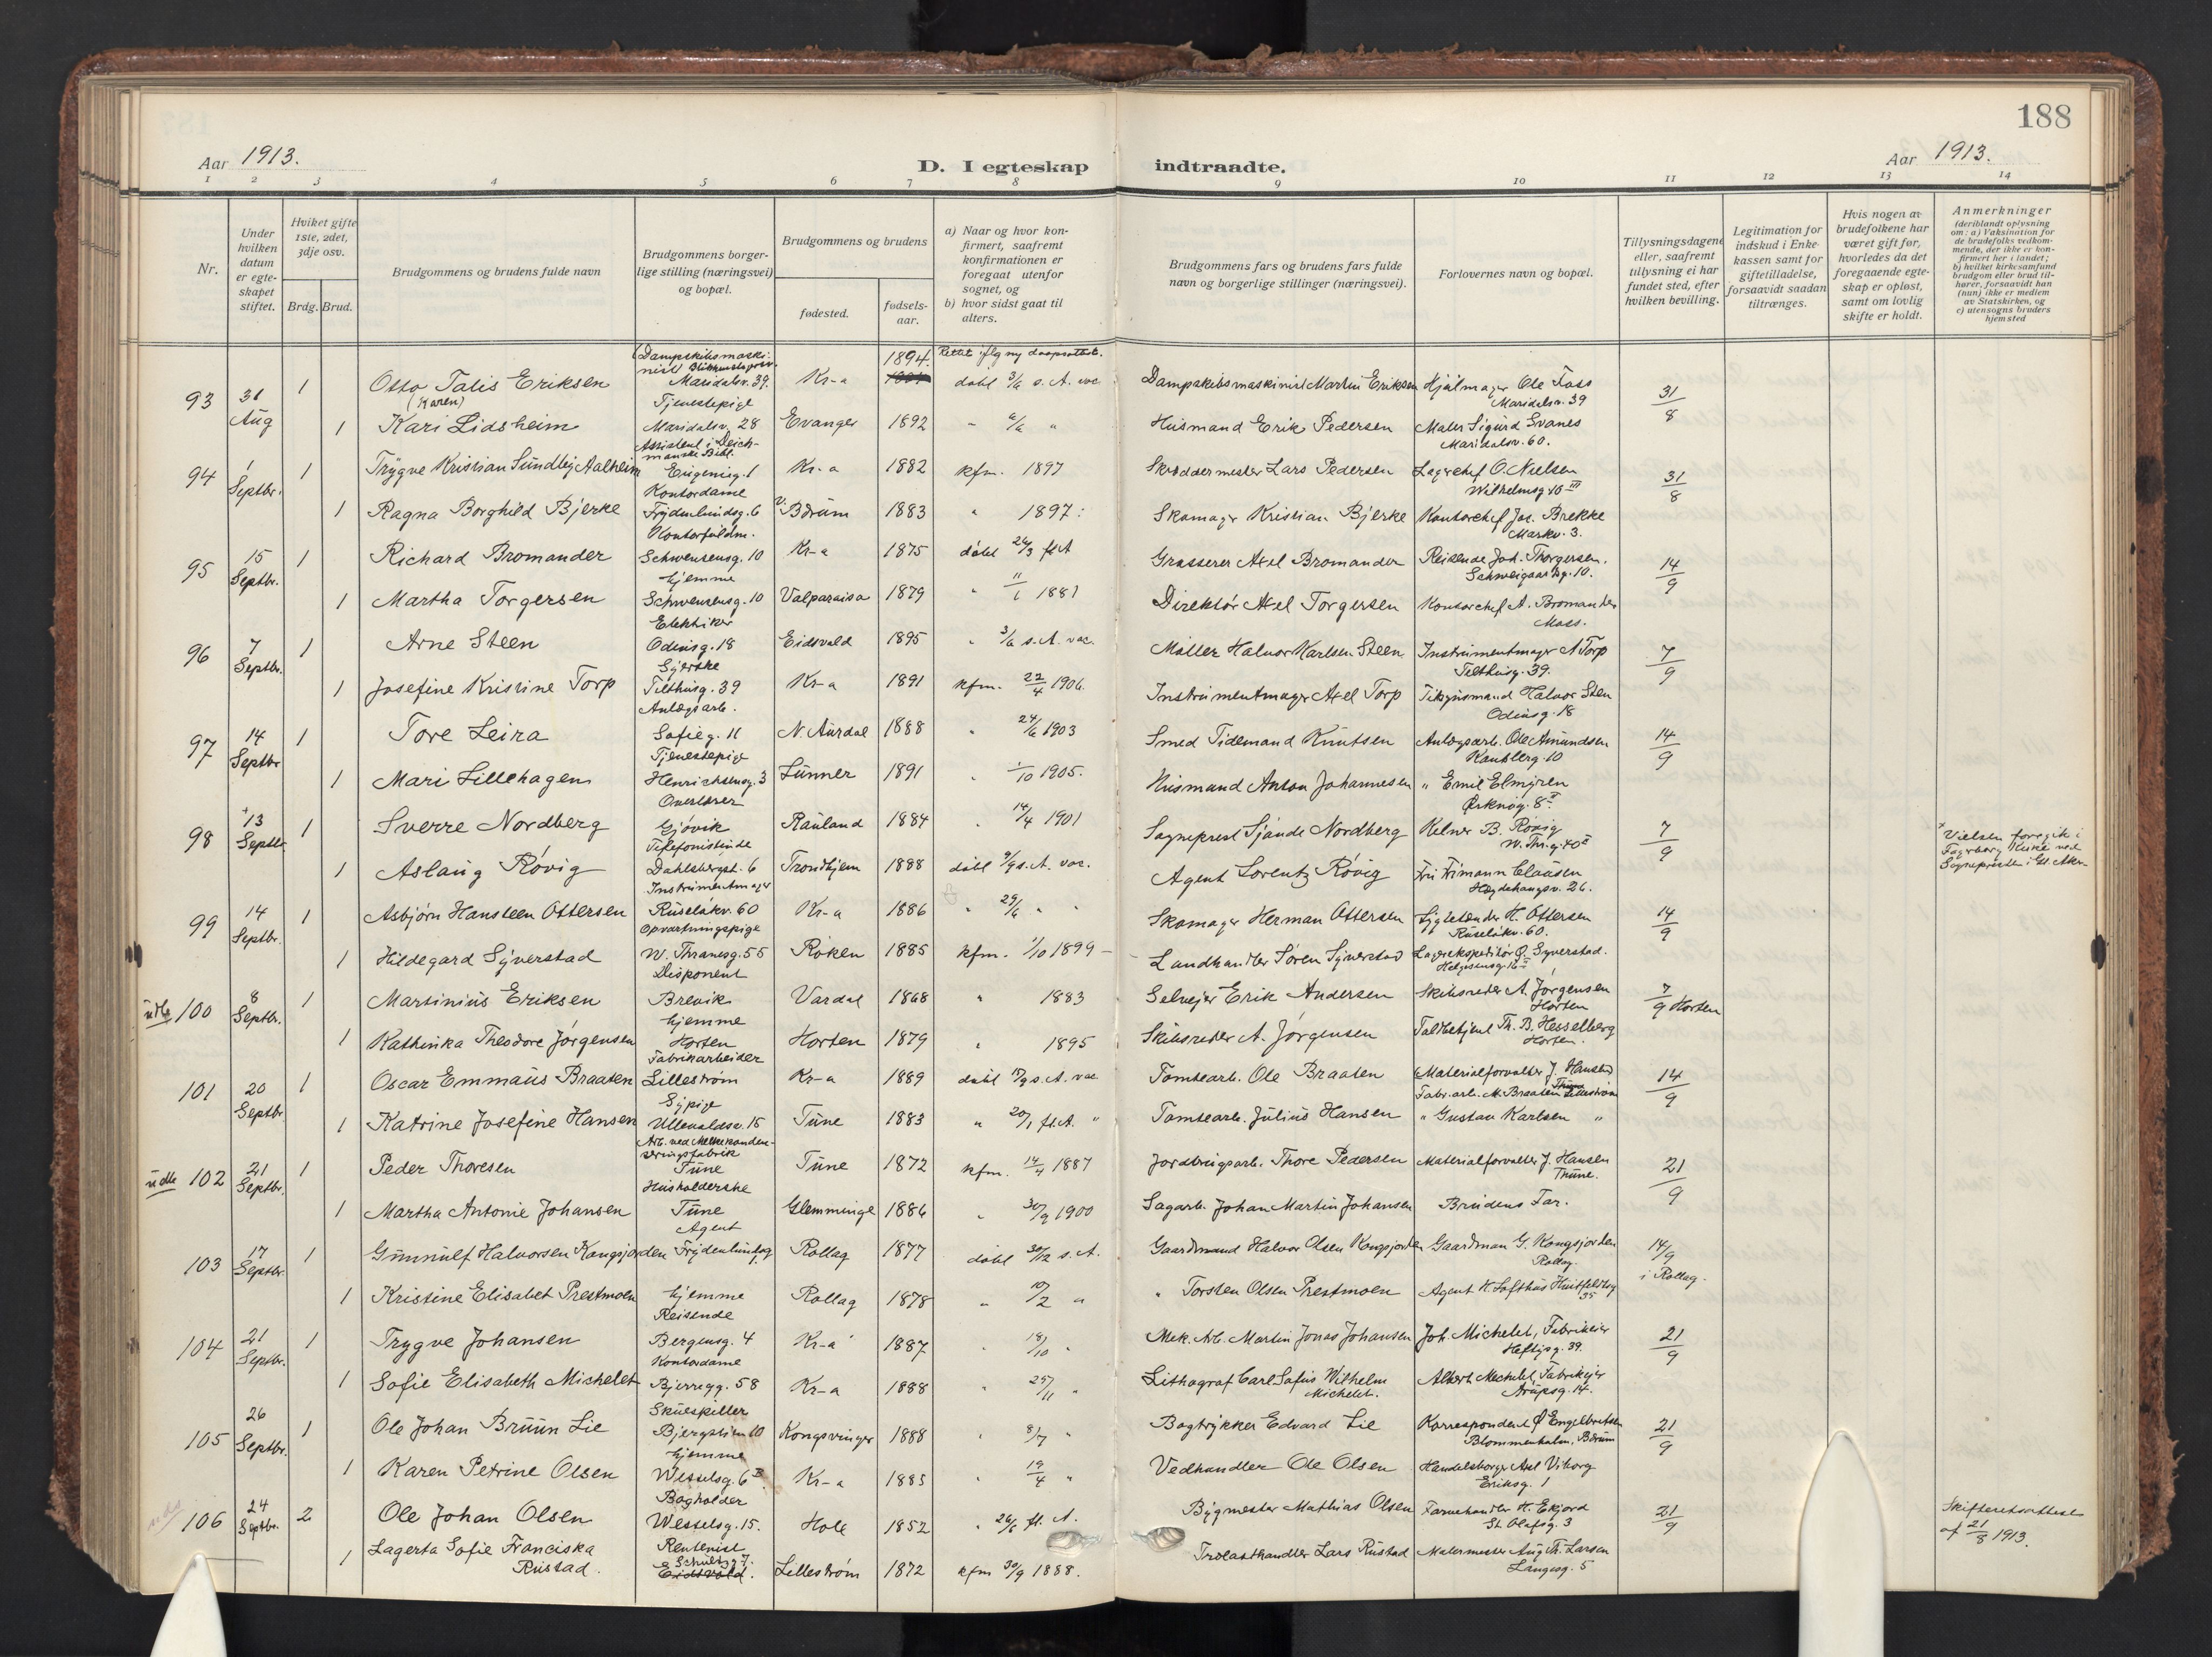 188
Aar 1913.
D. I egteskap indtraadte.
Aar 1913.
1 2 3 4 5 6 7 8 9 10 11 12 13 14
Nr.
Under hvilken datum er egteskapet stiftet.
Hvilket gifte 1ste, 2det, 3dje osv.
Brdg. Brud.
Brudgommens og brudens fulde navn
Brudgommens borgerlige stilling (næringsvei) og bopæl.
Brudgommens og brudens
fødested.
fødselsaar.
a) Naar og hvor konfirmert, saafremt konfirmationen er foregaat utenfor sognet, og
b) hvor sidst gaat til alters.
Brudgommens fars og brudens fars fulde navn og borgerlige stillinger (næringsvei).
Forlovernes navn og bopæl.
Tillysningsdagene eller, saafremt tillysning ei har fundet sted, efter hvilken bevilling.
Legitimation for indskud i Enkekassen samt for giftetilladelse, forsaavidt saadan tiltrænges.
Hvis nogen av brudefolkene har været gift før, hvorledes da det foregaaende egteskap er opløst, samt om lovlig skifte er holdt.
Anmerkninger (deriblandt oplysning om: a) Vaksination for de brudefolks vedkommende, der ikke er konfirmert her i landet; b) hvilket kirkesamfund brudgom eller brud tilhører, forsaavidt han (hun) ikke er medlem av Statskirken, og c) utensogns bruders hjemsted
93 31 Aug 1 Otto Talis Eriksen Maridalsv. 39 Kr-a 1894. døbt 3/6 s. A. vac Dampskibsmaskinist Martin Eriksen Hjulmager Ole Foss Maridalsv. 39 31/8
(Karen)
1 Kari Lidsheim Tjenestepige Maridalsv. 28 Evanger 1892 Husmand Erik Pedersen Maler Sigurd Svanes Maridalsv. 60.
94 1 Septbr. 1 Trygve Kristian Sundby Aalheim Assistent i Deichmanske Bibl. Eugenig. 1 Kr-a 1882 kfm. 1897 Skræddermester Lars Pedersen Lagerchef O. Nielsen Wilhelmsg. 10 III 31/8
1 Ragna Borghild Bjerke Kontordame Frydenlundsg. 6 V. Bærum 1883 " 1897. Skomager Kristian Bjerke Kontorchef Jos. Brekke Markv. 3.
95 15 Septbr. 1 Richard Bromander Kontorfuldm. Schwensensg. 10 Kr-a 1875 døbt 26/3 fl. A Grosserer Axel Bromander Reisende Joh. Thorgersen. Schweigaardsg. 10. 14/9
1 Martha Torgersen hjemme Schwensensg. 10 Valparaiso 1879 " 11/1 1881 Direktør Axel Torgersen Kontorchef A. Bromander Moss.
96 7 Septbr. 1 Arne Steen Elektriker Odinsg. 18 Eidsvold 1895 " 3/6 s. A. vac. Møller Halvor Karlsen Steen Instrumentmager A Torp Tilthusg. 39. 7/9
1 Josefine Kristine Torp Syerske Tilthusg. 39 Kr-a 1891 kfm. 22/4 1906. Instrumentmager Axel Torp Tilsynsmand Halvor Steen Odinsg. 18
97 14 Septbr 1 Tore Leira Anlægsarb. Sofieg. 11 N. Aurdal 1888 " 24/6 1903 Smed Tidemand Knutsen Anlægsarb. Ole Amundsen 14/9
1 Mari Lillehagen Tjenestepige Henrichsensg. 3 Lunner 1891 " 1/10 1905. Husmand Anton Johannesen " Emil Elmgren Ørknøg. 8 II
98 +13 Septbr. 1 Sverre Nordberg Overlærer Gjøvik Rauland 1884 " 14/4 1901 Sogneprest Sjande Nordberg Kelner B. Røvig W. Thr.g. 40 II 7/9
+ Vielsen foregik i Fagerborg Kirke ved Sognepresten i Gl. Aker
1 Aslaug Røvig Telefonistinde Dahlsbergst. 6 Trondhjem 1888 døbt 9/9 s. A. vac. Agent Lorentz Røvig Fru Frimann Clausen Hegdehaugsv. 26.
99 14 Septbr. 1 Asbjørn Hansteen Ottersen Instrumentmager Ruseløkv. 60 Kr-a 1886 " 29/6 " " Skomager Herman Ottersen Lygtetænder H. Ottersen Ruseløkv. 60. 14/9
1 Hildegard Syverstad Opvartningspige W. Thranesg. 55 Røken 1885 kfm. 1/10 1899 Landhandler Søren Syverstad Lagerekspeditør Ø. Syverstad. Helgesensg. 16 II
udb 100 8 Septbr. 1 Martinius Eriksen Disponent Brevik Vardal 1868 " 1883 Selveier Erik Andersen Skibsreder A. Jørgensen Horten 7/9 Horten
1 Kathinka Theodore Jørgensen hjemme Horten Horten 1879 " 1895 Skibsreder A. Jørgensen Toldbetjent Th. B. Hesselberg Horten.
101 20 Septbr. 1 Oscar Emmaus Braaten Fabrikarbeider Lillestrøm Kr-a 1889 døbt 15/9 s. A. vac Tomtearb. Ole Braaten Materialforvalter J. Hansen Thune Fabr.arb. M. Braaten Lillestrøm 14/9
1 Katrine Josefine Hansen Sypige Ullevoldsv. 15 Tune 1883 " 20/1 fl. A. " Tomtearb. Julius Hansen " Gustav Karlsen "
udb 102 21 Septbr. 1 Peder Thoresen Arb. ved Melkekondenseringsfabrik Tune Tune 1872 kfm. 14/4 1887 Jordbrugsarb. Thore Pedersen Materialforvalter J. Hansen Thune. 21/9
1 Martha Antonie Johansen Husholderske Tune Glemminge 1886 " 30/9 1900 Sagarb. Johan Martin Johansen Brudens Far.
103 17 Septbr. 1 Gunnulf Halvorsen Kongsjorden Agent Frydenlundsg Rollag 1877 døbt 30/12 s. A. Gaardmand Halvor Olsen Kongsjorden Gaardman G. Kongsjorden Rollag. 14/9 i Rollag.
1 Kristine Elisabet Prestmoen hjemme Rollag 1878 " 10/2 " " Torsten Olsen Prestmoen Agent H. Lofthus Huitfeldtsg 35
104 21 Septbr. 1 Trygve Johansen Reisende Bergensg. 4 Kr-a 1887 " 18/10 " Mek. Arb. Martin Jonas Johansen Joh. Michelet, Fabrikeier Heftyg. 39. 21/9
1 Sofie Elisabeth Michelet Kontordame Bjerregg. 58 Kr-a 1888 " 25/11 " Lithograf Carl Sofus Wilhelm Michelet. Albert Michelet, Fabrikeier Arupsg. 14.
105 26 Septbr. 1 Ole Johan Bruun Lie Skuespiller Bjergstien 10 Kongsvinger 1888 " 8/7 " Bogtrykker Edvard Lie Korrespondent Ø Engelbretsen Blommenholm, Bærum 21/9
1 Karen Petrine Olsen hjemme Wesselsg. 6 II Kr-a 1885 " 19/4 " Vedhandler Ole Olsen Handelsborger Axel Viborg Eriksg. 1
106 24 Septbr. 2 Ole Johan Olsen Bogholder Wesselsg. 15. Hole 1852 " 26/6 fl. A. Bygmester Mathias Olsen Farvehandler H. Ekjord St. Olafsg. 3 21/9 Skifteretsattest af 21/8 1913.
1 Lagerta Sofie Franciska Rustad. Rentenist Schultzg 7. Eidsvold. Lillestrøm 1872 kfm 30/9 1888. Trælasthandler Lars Rustad Malermester Aug. Th. Larsen Langesg. 5